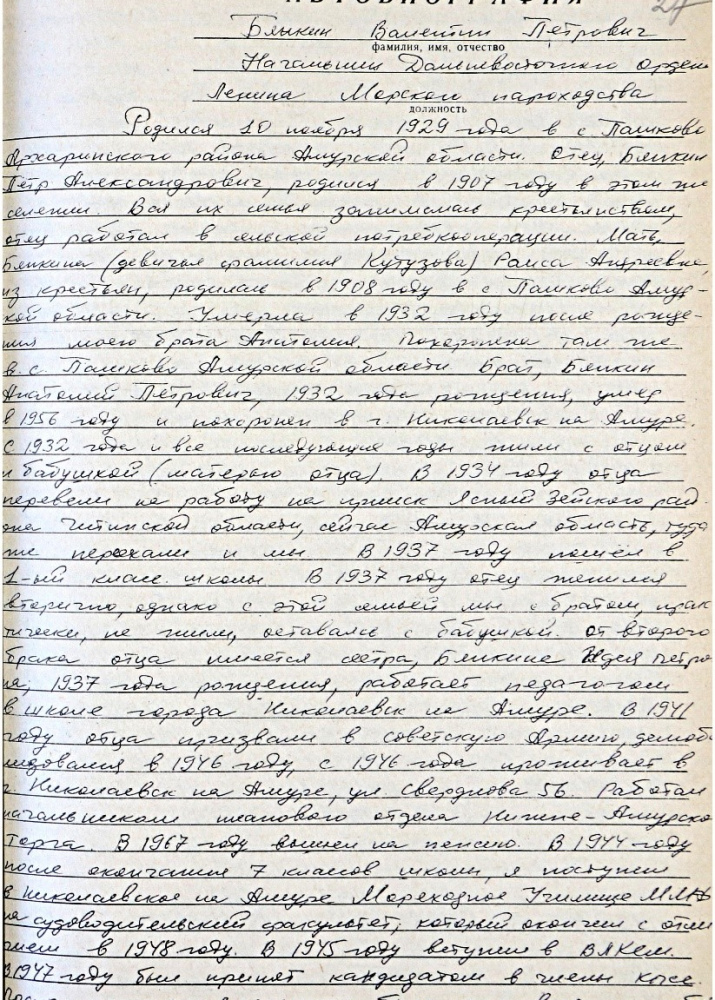 АВТОБИОГРАФИЯ
27
Бянкин Валентин Петрович
фамилия, имя, отчество
Начальник Дальневосточного ордена
Ленина Морского пароходства
должность
Родился 10 ноября 1929 года в с Пашково
Архаринского района Амурской области. Отец, Бянкин
Пётр Александрович, родился в 1907 году в этом же
селении. Вся их семья занималась крестьянством,
отец работал в сельской потребкооперации. Мать,
Бянкина (девичья фамилия Кутузова) Раиса Андреевна,
из крестьян, родилась в 1908 году в с Пашково Амур-
кой области. Умерла в 1932 году после рожде-
ния моего брата Анатолия. Похоронена там же
в с. Пашково Амурской области Брат, Бянкин
Анатолий Петрович, 1932 года рождения, умер
в 1956 году и похоронен в г. Николаевск на Амуре.
С 1932 года и все последующие годы жили с отцом
и бабушкой (матерью отца). В 1934 году отца
перевели на работу на прииск Ясный Зейского рай-
она Читинской области, сейчас Амурская область, туда
же переехали и мы В 1937 году пошёл в
1-ый класс школы В 1937 году отец женился
вторично, однако с этой семьёй мы с братом, прак
тически, не жили, оставались с бабушкой. от второго
брака отца имеется сестра, Бянкина Идея Петров
на, 1937 года рождения, работает педагогом
в школе города Николаевск на Амуре. В 1941
году отца призвали в советскую Армию, демоби
лизовался в 1946 году, с 1946 года проживает в
г. Николаевск на Амуре, ул Свердлова 56. Работал
начальником планового отдела Нижне-Амурско
Торга. В 1967 году вышел на пенсию. В 1944 году
после окончания 7 классов школы, я поступил
в Николаевское на Амуре Мореходное Училище ММФ
на судоводительский факультет, который окончил с отли
чием в 1948 году. В 1945 году вступил в ВЛКСМ.
В 1947 году был принят кандидатом в члены КПСС.